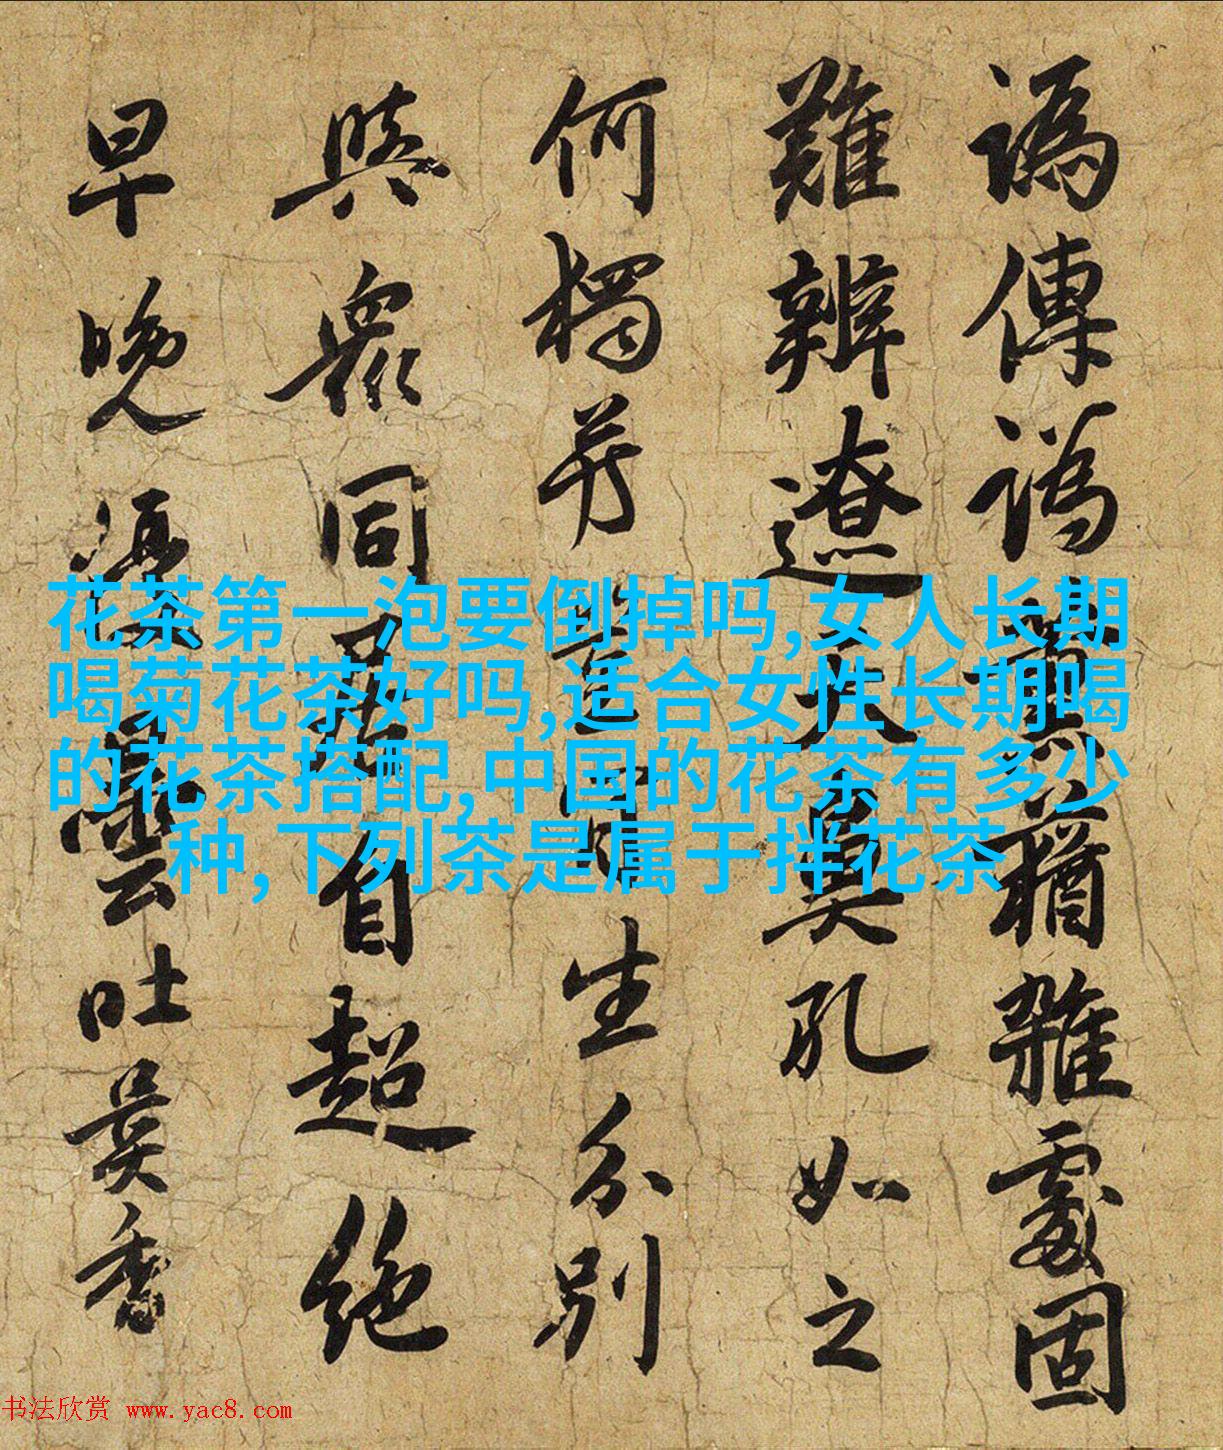 譌傳譌薰蕕雜處固
難辨遼天鼻孔如之
何獨芳生分別
衆同自超絶
早晚曇吐異香
花茶第一泡要倒掉吗,女人长期
喝菊花茶好吗,适合女性长期喝
的花茶搭配,中国的花茶有多少
种,下列茶是属于拌花茶
书法欣赏 www.yac8.com